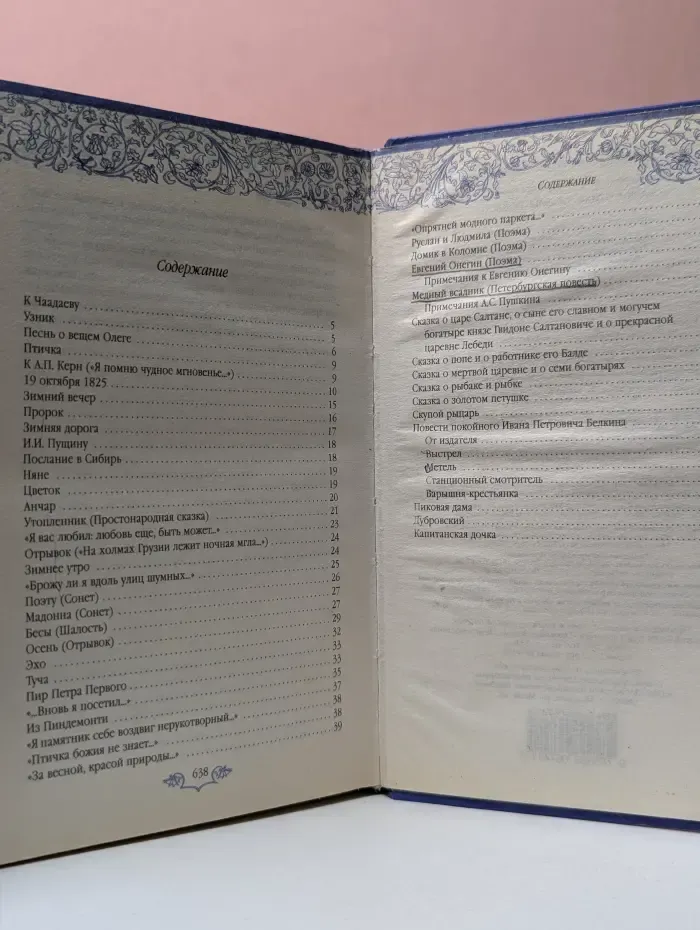 Содержание
К Чаадаеву 5
Узник 5
Песнь о вещем Олеге 6
Птичка 9
К А.П. Керн («Я помню чудное мгновенье...») 9
19 октября 1825 10
Зимний вечер 15
Пророк 16
Зимняя дорога 17
И.И. Пущину 18
Послание в Сибирь 18
Няне 19
Цветок 19
Анчар 20
Утопленник (Простонародная сказка) 21
«Я вас любил: любовь еще, быть может...» 23
Отрывок («На холмах Грузии лежит ночная мгла...») 24
Зимнее утро 24
«Брожу ли я вдоль улиц шумных...» 25
Поэту (Сонет) 26
Мадонна (Сонет) 27
Бесы (Шалость) 27
Осень (Отрывок) 29
Эхо 32
Туча 33
Пир Петра Первого 33
«...Вновь я посетил...» 35
Из Пиндемонти 37
«Я памятник себе воздвиг нерукотворный...» 38
«Птичка божия не знает...» 38
«За весной, красой природы...» 39
638
Содержание
«Опрятней модного паркета...»
Руслан и Людмила (Поэма)
Домик в Коломне (Поэма)
Евгений Онегин (Поэма)
Примечания к Евгению Онегину
Медный всадник (Петербургская повесть)
Примечания А.С. Пушкина
Сказка о царе Салтане, о сыне его славном и могучем
богатыре князе Гвидоне Салтановиче и о прекрасной
царевне Лебеди
Сказка о попе и о работнике его Балде
Сказка о мертвой царевне и о семи богатырях
Сказка о рыбаке и рыбке
Сказка о золотом петушке
Скупой рыцарь
Повести покойного Ивана Петровича Белкина
От издателя
Выстрел
Метель
Станционный смотритель
Барышня-крестьянка
Пиковая дама
Дубровский
Капитанская дочка